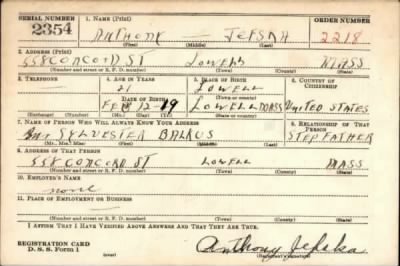 SERIAL NUMBER 1. NAME (Print) ORDER NUMBER
2354 ANTHONY — 2218
(First) (Middle) (Last)
2. ADDRESS (Print)
558 CONCORD ST LOWELL MASS
(Number and street or R. F. D. number) (Town) (County) (State)
3. TELEPHONE 4. AGE IN YEARS 5. PLACE OF BIRTH 6. COUNTRY OF CITIZENSHIP
21 LOWELL
DATE OF BIRTH (Town or county)
FEB 12-19 LOWELL MASS UNITED STATES
(Exchange) (Number) (Mo.) (Day) (Yr.) (State or country)
7. NAME OF PERSON WHO WILL ALWAYS KNOW YOUR ADDRESS 8. RELATIONSHIP OF THAT PERSON
Mr SYLVESTER BALKUS STEPFATHER
(Mr., Mrs., Miss) (First) (Middle) (Last)
9. ADDRESS OF THAT PERSON
558 CONCORD ST LOWELL MASS
(Number and street or R. F. D. number) (Town) (County) (State)
10. EMPLOYER'S NAME
none
11. PLACE OF EMPLOYMENT OR BUSINESS
(Number and street or R. F. D. number) (Town) (County) (State)
I AFFIRM THAT I HAVE VERIFIED ABOVE ANSWERS AND THAT THEY ARE TRUE.
REGISTRATION CARD
D. S. S. Form 1 (over) Anthony
(Registrant's signature)